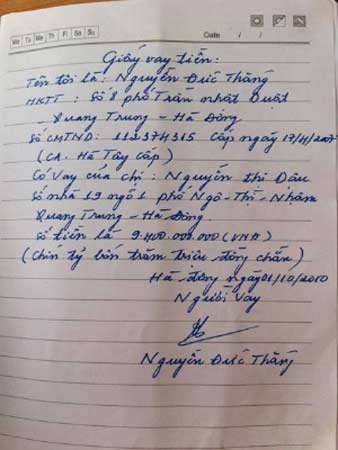 Mo Tu We Th Fr Sa Su
Date / /
Giấy vay tiền:
Tên tôi là: Nguyễn Đức Thắng
HKTT: Số 8 phố Trần nhật Duật
Quang Trung - Hà Đông
Số CMTND: 112374315 Cấp ngày 17/4/2007
(CA. Hà Tây Cấp)
Có vay của chị: Nguyễn thị Dậu
Số nhà 19 ngõ 1 phố Ngô-Thị-Nhậm
Quang Trung - Hà Đông.
Số tiền là 9.400.000.000 (VNĐ)
(Chín tỷ bốn trăm triệu đồng chẵn)
Hà đông ngày 01/10/2010
Người Vay
Nguyễn Đức Thắng